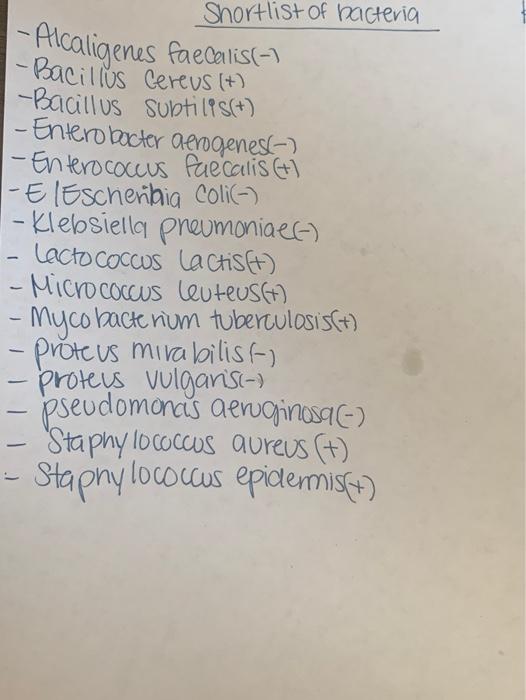 Shortlist of bacteria
- Alcaligenes faecalis(-)
- Bacillus Cereus (+)
- Bacillus subtilis(+)
- Enterobacter aerogenes(-)
- Enterococcus faecalis(+)
- E/Escherihia coli(-)
- Klebsiella pneumoniae(-)
- Lactococcus Lactis(+)
- Micrococcus leuteus(+)
- Mycobacterium tuberculosis(+)
- proteus mirabilis(-)
- proteus vulgaris(-)
- pseudomonas aeruginosa(-)
- Staphylococcus aureus (+)
- Staphylococcus epidermis(+)